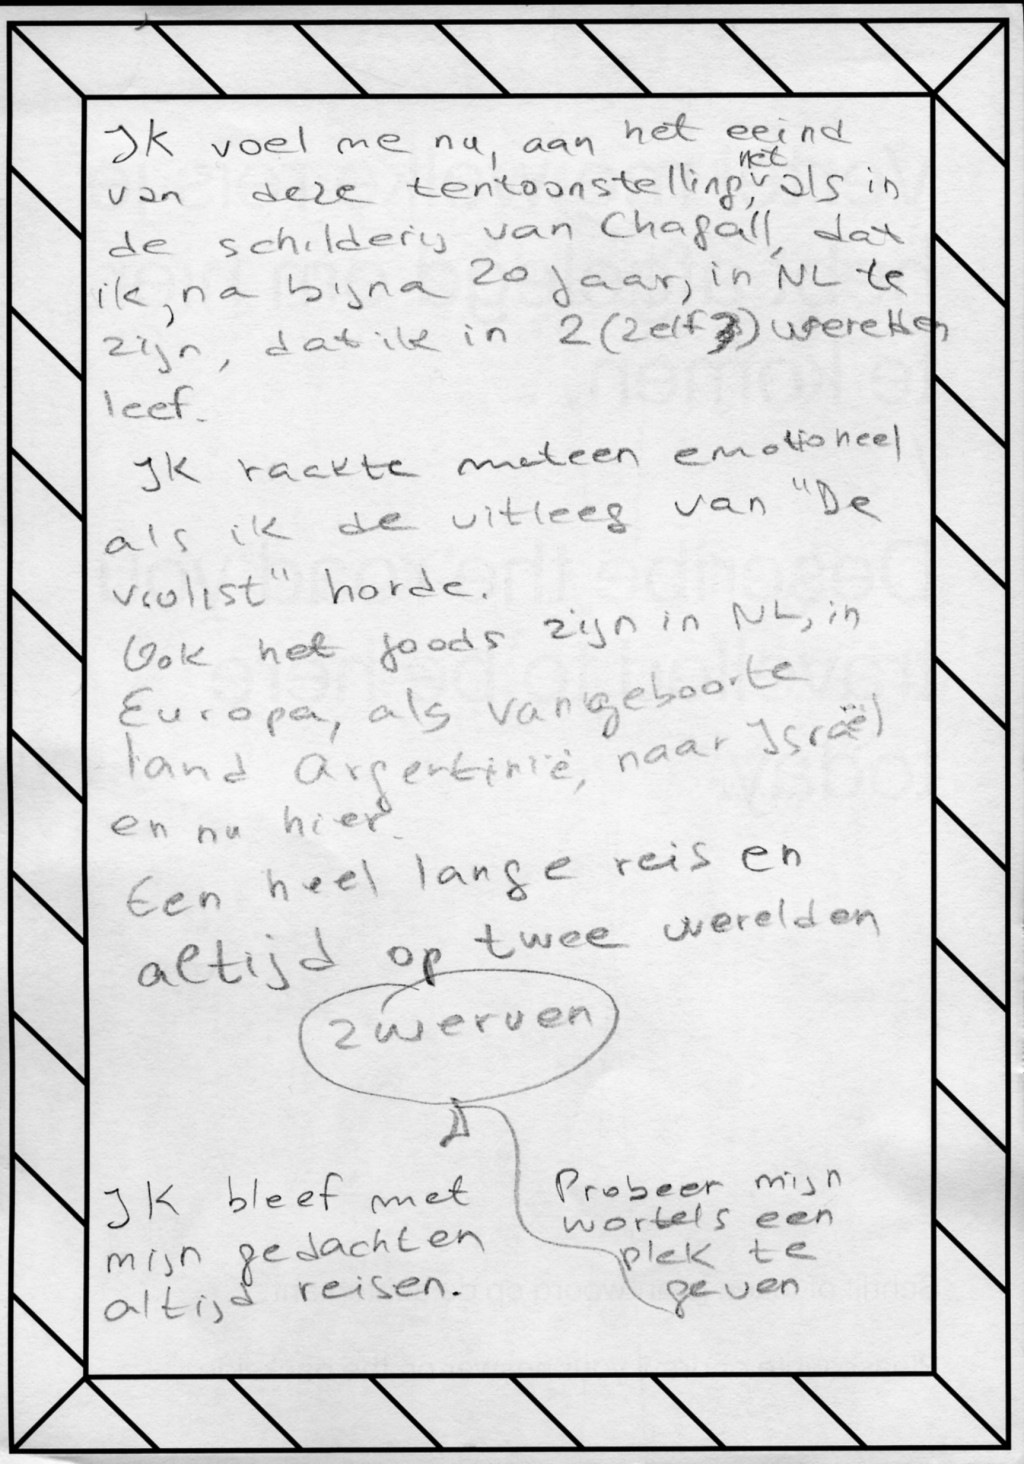 Ik voel me nu, aan het eeind
van deze tentoonstelling, net als in
de schilderij van Chagall, dat
ik, na bijna 20 jaar, in NL te
zijn, dat ik in 2 (zelf 3) werelden
leef.
Ik raakte meteen emotioneel
als ik de uitleeg van "De
violist" horde.
Ook het joods zijn in NL, in
Europa, als van geboorte
land Argentinië, naar Israël
en nu hier.
Een heel lange reis en
altijd op twee werelden
zwerven
Ik bleef met
mijn gedachten
altijd reisen.
Probeer mijn
wortels een
plek te
geven